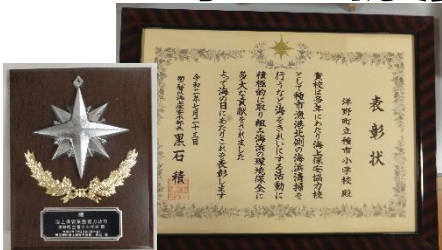 表彰状
洋野町立種市小学校 殿
貴校は多年にわたり海上保安協力校
として種市漁港北側の海浜清掃を
行うなど海をきれいにする活動に
積極的に取り組み海浜の環境保全に
多大な貢献をされました
よって海の日にあたりこれを表彰します
令和二年七月二十三日
第二管区海上保安本部長 黒石 積